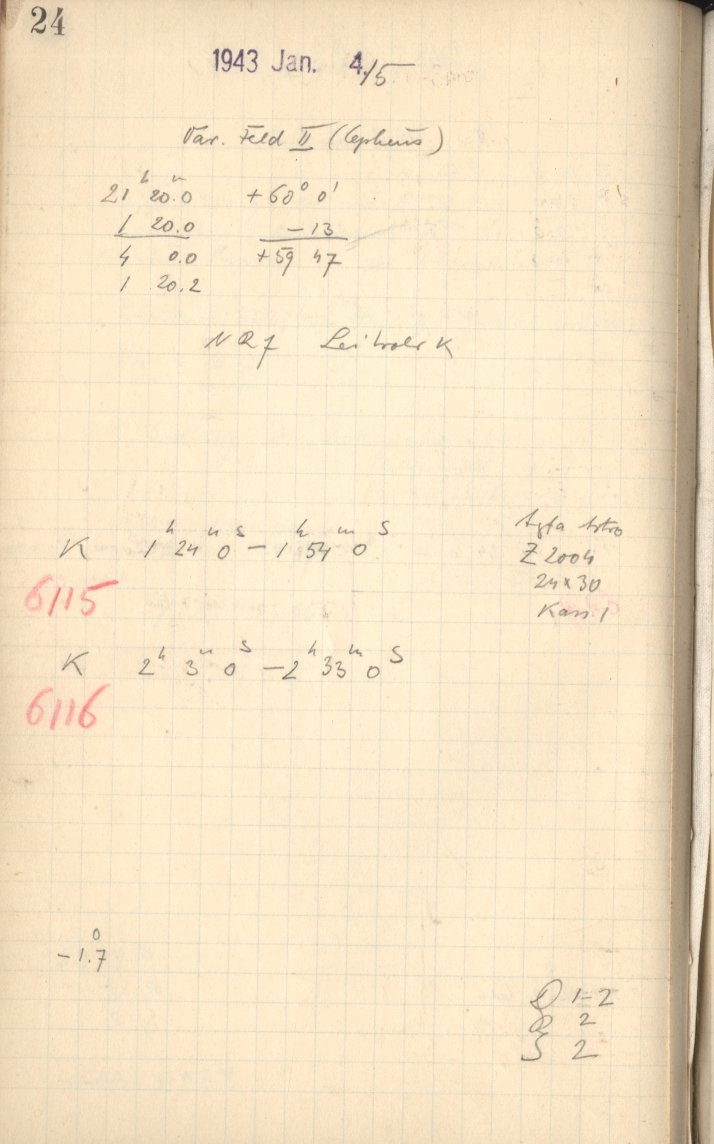 24
1943 Jan. 4./5.
Var. Feld II (Cepheus)
21ʰ 20.0ᵐ +60° 0'
1 20.0 -13
4 0.0 +59 47
1 20.2
Leitrohr K
K 1ʰ 24ᵐ 0ˢ - 1ʰ 54ᵐ 0ˢ
Agfa Astro
Z 2004
24x30
Kass 1
6115
K 2ʰ 3ᵐ 0ˢ - 2ʰ 33ᵐ 0ˢ
6116
-1.7°
D 1-2
R 2
S 2